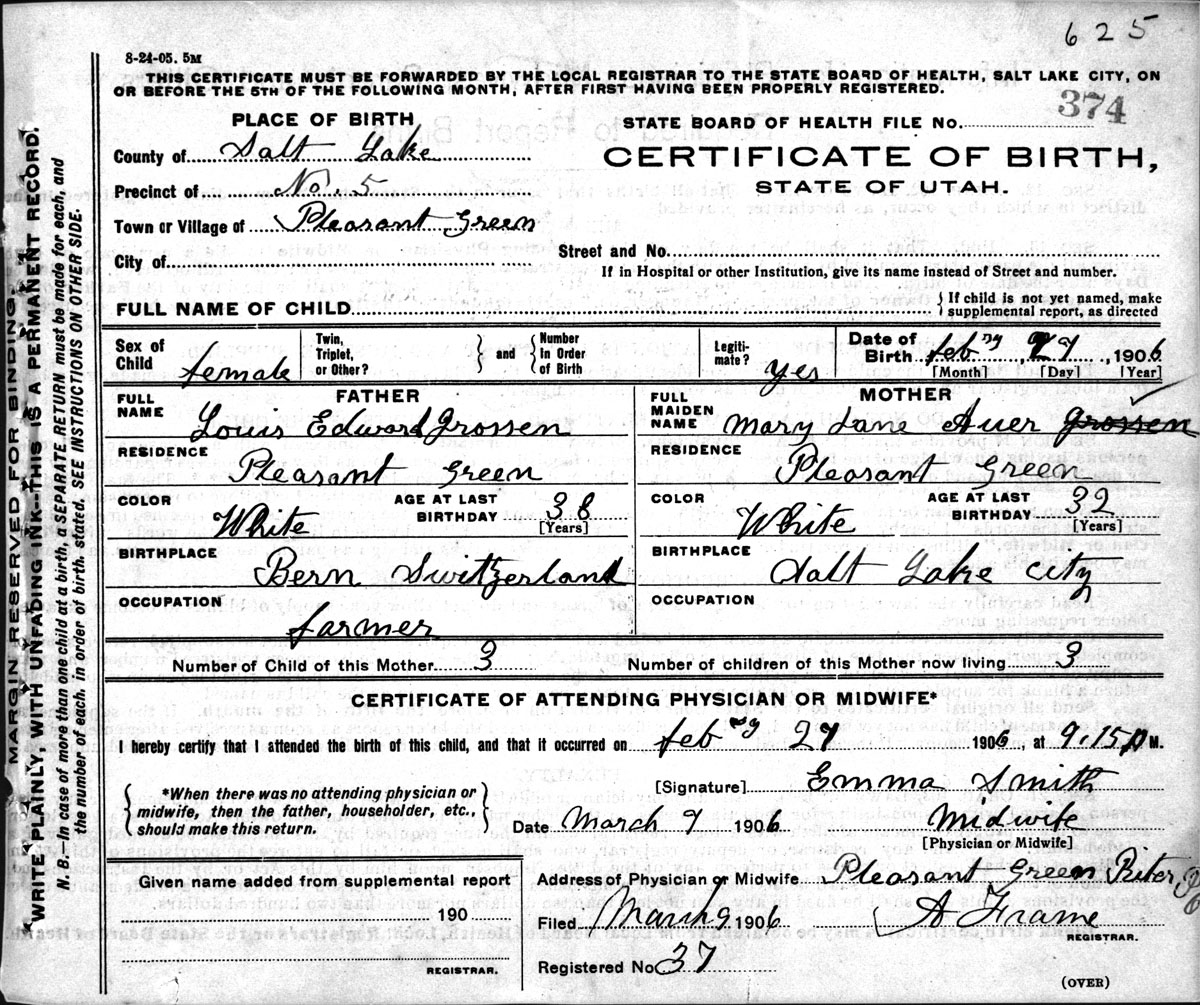 625
8-24-05. 5M
THIS CERTIFICATE MUST BE FORWARDED BY THE LOCAL REGISTRAR TO THE STATE BOARD OF HEALTH, SALT LAKE CITY, ON
OR BEFORE THE 5TH OF THE FOLLOWING MONTH, AFTER FIRST HAVING BEEN PROPERLY REGISTERED.
374
PLACE OF BIRTH
STATE BOARD OF HEALTH FILE No.
County of Salt Lake
CERTIFICATE OF BIRTH,
STATE OF UTAH.
Precinct of No. 5
Town or Village of Pleasant Green
City of
Street and No.
If in Hospital or other Institution, give its name instead of Street and number.
FULL NAME OF CHILD
If child is not yet named, make
supplemental report, as directed
Sex of Child female
Twin, Triplet, or Other?
and
Number In Order of Birth
Legiti-mate? Yes
Date of Birth feb ry 27, 1906
[Month] [Day] [Year]
FATHER
FULL NAME Louis Edward Grossen
RESIDENCE Pleasant Green
COLOR White
AGE AT LAST BIRTHDAY 38
[Years]
BIRTHPLACE Bern Switzerland
OCCUPATION farmer
MOTHER
FULL MAIDEN NAME Mary Jane Auer Grossen
RESIDENCE Pleasant Green
COLOR White
AGE AT LAST BIRTHDAY 32
[Years]
BIRTHPLACE Salt Lake City
OCCUPATION
Number of Child of this Mother 3
Number of children of this Mother now living 3
CERTIFICATE OF ATTENDING PHYSICIAN OR MIDWIFE*
I hereby certify that I attended the birth of this child, and that it occurred on feb ry 27 1906, at 9.15 P M.
[Signature] Emma Smith
*When there was no attending physician or
midwife, then the father, householder, etc.,
should make this return.
Date March 9 1906
Midwife
[Physician or Midwife]
Given name added from supplemental report
190
REGISTRAR.
Address of Physician or Midwife Pleasant Green Riter
Filed March 9 1906
A Frame
REGISTRAR.
Registered No. 37
(OVER)
MARGIN RESERVED FOR BINDING.
WRITE PLAINLY, WITH UNFADING INK--THIS IS A PERMANENT RECORD.
N. B.—In case of more than one child at a birth, a SEPARATE RETURN must be made for each, and
the number of each, in order of birth, stated. SEE INSTRUCTIONS ON OTHER SIDE.